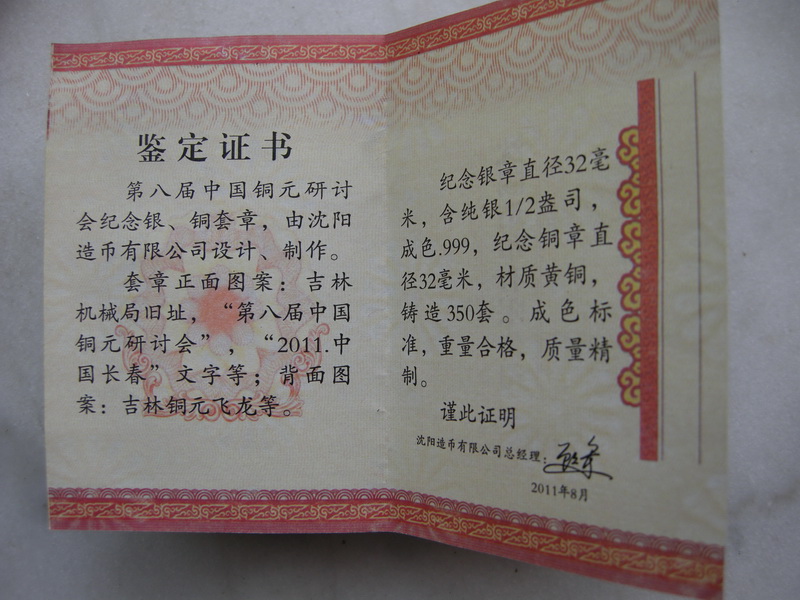 鉴定证书
第八届中国铜元研讨
会纪念银、铜套章，由沈阳
造币有限公司设计、制作。
套章正面图案：吉林
机械局旧址，“第八届中国
铜元研讨会”，“2011.中
国长春”文字等；背面图
案：吉林铜元飞龙等。
纪念银章直径32毫
米，含纯银1/2盎司，
成色.999，纪念铜章直
径32毫米，材质黄铜，
铸造350套。成色标
准，重量合格，质量精
制。
谨此证明
沈阳造币有限公司总经理：
2011年8月